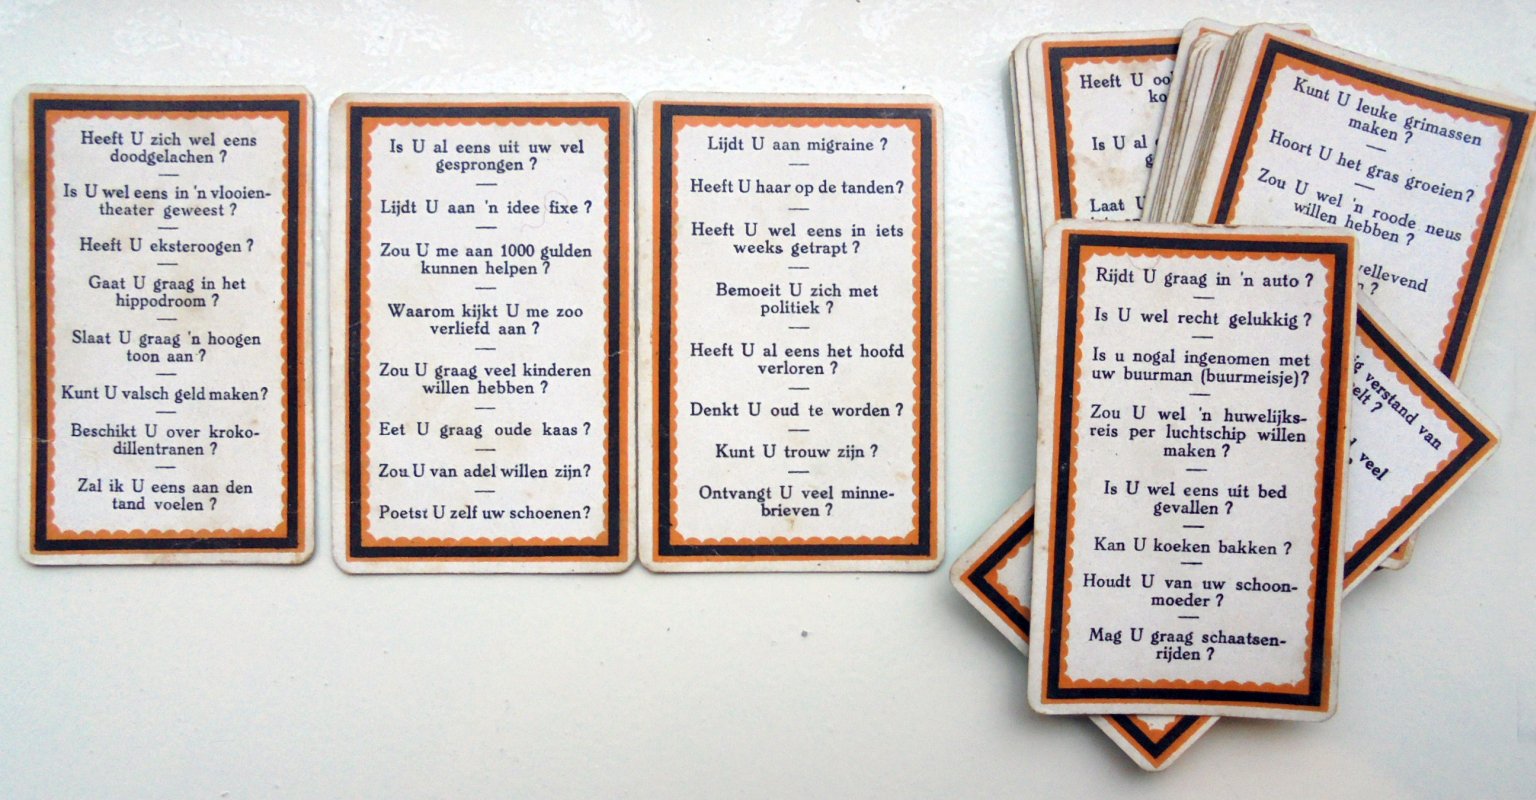 Heeft U zich wel eens
doodgelachen ?
Is U wel eens in 'n vlooien-
theater geweest ?
Heeft U eksteroogen ?
Gaat U graag in het
hippodroom ?
Slaat U graag 'n hoogen
toon aan ?
Kunt U valsch geld maken ?
Beschikt U over kroko-
dillentranen ?
Zal ik U eens aan den
tand voelen ?
Is U al eens uit uw vel
gesprongen ?
Lijdt U aan 'n idee fixe ?
Zou U me aan 1000 gulden
kunnen helpen ?
Waarom kijkt U me zoo
verliefd aan ?
Zou U graag veel kinderen
willen hebben ?
Eet U graag oude kaas ?
Zou U van adel willen zijn?
Poetst U zelf uw schoenen?
Lijdt U aan migraine ?
Heeft U haar op de tanden?
Heeft U wel eens in iets
weeks getrapt ?
Bemoeit U zich met
politiek ?
Heeft U al eens het hoofd
verloren ?
Denkt U oud te worden ?
Kunt U trouw zijn ?
Ontvangt U veel minne-
brieven ?
Heeft U
Is U al
Laat U
Kunt U leuke grimassen
maken ?
Hoort U het gras groeien?
Zou U wel 'n roode neus
willen hebben ?
?
verstand van
?
veel
Rijdt U graag in 'n auto ?
Is U wel recht gelukkig ?
Is u nogal ingenomen met
uw buurman (buurmeisje)?
Zou U wel 'n huwelijks-
reis per luchtschip willen
maken ?
Is U wel eens uit bed
gevallen ?
Kan U koeken bakken ?
Houdt U van uw schoon-
moeder ?
Mag U graag schaatsen-
rijden ?